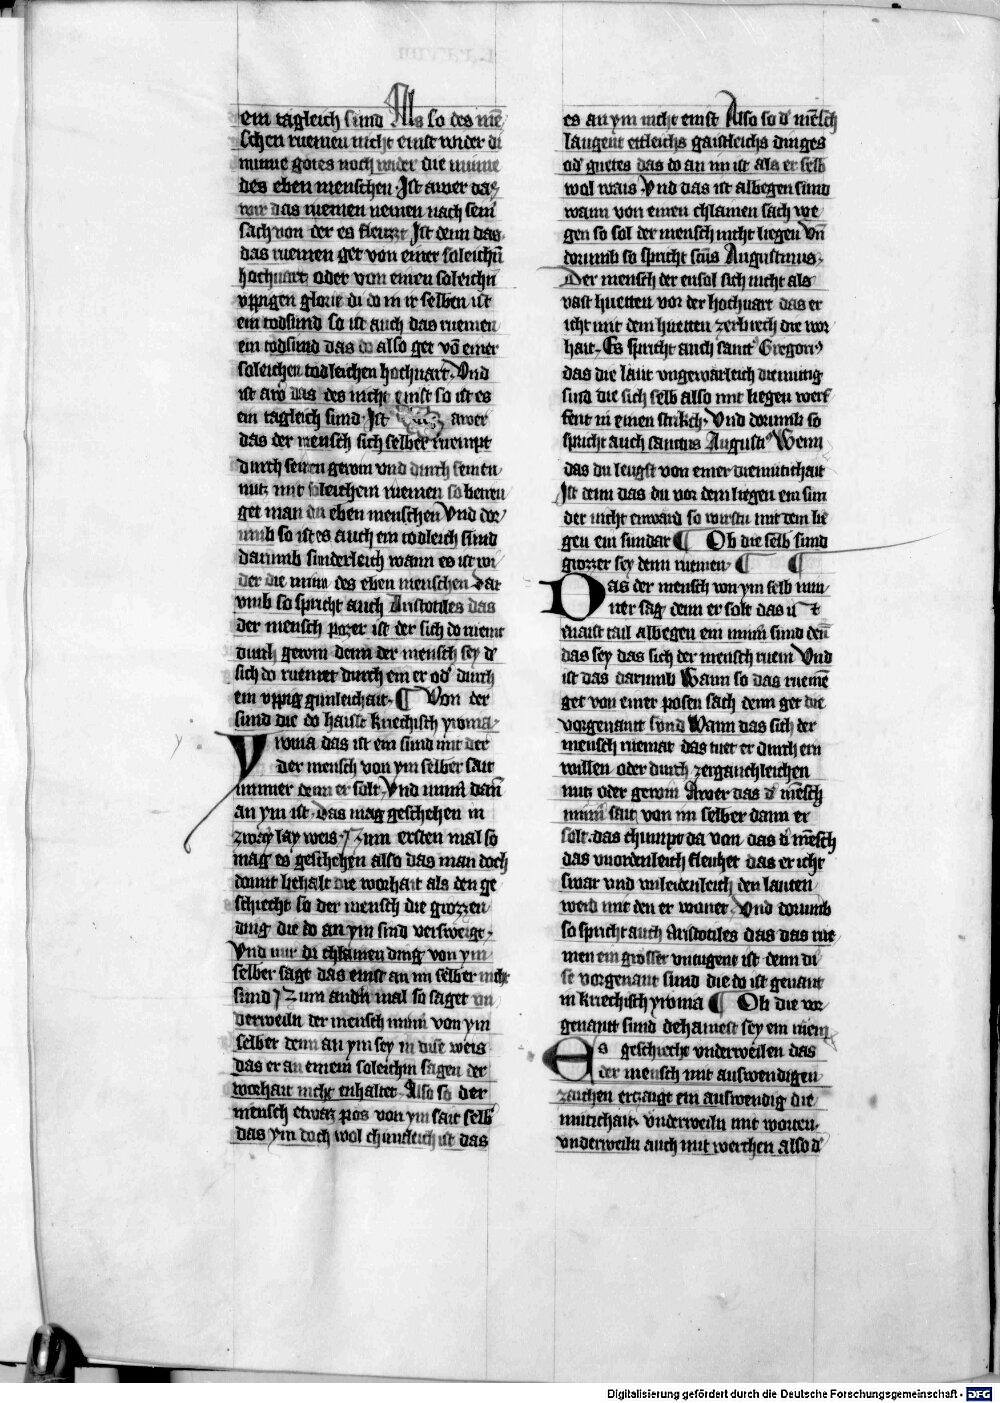 ein tagleich sund Als so des me͞
schen ruemen nicht einst wider di
minne gotes noch wider die minne
des eben menschen · Ist awer das
wir das ruemen nemen nach sein͞
sach von der es fleuzzt Ist denn das
das ruemen get von einer soleichn͞
hochuart oder von einen soleichn͞
vppigen glorie di do in ir selben ist
ein todsund so ist auch das ruemen
ein todsund das do also get vo͞ einer
soleichen todleichen hochuart · Vnd
ist aw͛ das des nicht einst so ist es
ein tagleich sund · Ist awer
das der mensch sich selber ruempt
durch seinen gewin vnd durch seinen
nutz mit soleichem ruemen so betreu
get man di eben menschen Vnd dor
umb so ist es auch ein todleich sund
darumb sunderleich wann es ist wi
der die minn des eben menschen Dar
vmb so spricht auch Aristotiles das
der mensch pozer ist der sich do ruemt
durch gewin denn der mensch sey d͛
sich do ruemet durch ein er od͛ durch
ein vppig gunleichait · ¶ Von der
sund die do haisst kriechisch yroma
Yroma das ist ein sund mit der
der mensch von ym selber sait
minner denn er solt · Vnd minn͛ dan͞
an ym ist · Das mag geschehen in
zway lay weis · Zum ersten mal so
mag es geschehen also das man doch
domit behalt die worhait als den ge
schiecht so der mensch die grozzen
ding die do an ym sind versweigt ·
Vnd nur di chlainen ding von ym
selber sagt das einst an im selber nicht
sind Zum andn͛ mal so saget vn
derweiln der mensch minn von ym
selber denn an ym sey in dise weis
das er an einem soleichm sagen der
worhait nicht enhaltet · Also so der
mensch etwaz pos von ym sait selb͛
das ym doch wol chuntleich ist das
es an ym nicht einst Also so d͛ me͞sch
laugent ettleichs gaistleichs dinges
od͛ guetes das do an im ist als er selb
wol wais Vnd das ist albegen sund
wann von einen chlainen sach we
gen so sol der mensch nicht liegen Vn͞
dorumb so spricht sc͞us Augustinus ·
Der mensch der ensol sich nicht als
vast huetten vor der hochuart das er
icht mit dem huetten zerbrech die wor
hait · Es spricht auch sanct Gregori͛
das die laut vngewarleich diemutig
sind die sich selb also mit liegen werf
fent in einen strikch · Vnd dorumb so
spricht auch sanctus Augusti͛ Wenn
das du leugst von einer diemutichait
Ist denn das du vor dem liegen ein sun
der nicht enward so wirstu mit dem lie
gen ein sundar ¶ Ob die selb sund
grozzer sey denn ruemen · ¶ ¶
Das der mensch von ym selb min
ner sag denn er solt das ist
maist tail albegen ein minn͛ sund den͞
das sey das sich der mensch ruem Vnd
ist das darumb Wann so das rueme͞
get von einer posen sach denn get die
vorgenant sund Wann das sich der
mensch ruemat das tuet er durch ein
willen oder durch zergauchleichen
nutz oder gewin Awer das d͛ me͞sch
minn͛ sait von im selber dann er
solt · das chumpt da von das d͛ me͞sch
das vnordenleich fleuhet das er icht
swar vnd vnleidenleich den lauten
werd mit den er wonet · Vnd dorumb
so spricht auch Aristotiles das das rue
men ein grosser vntugent ist denn di
se vorgenant sund die do ist genant
in kriechisch yroma ¶ Ob die vor
genantt sund dehainest sey ein ruem
Es geschiecht vnderweilen das
der mensch mit auswendigen
zaichen erzaigt ein auswendig die
mutichait · vnderweiln mit worten ·
vnderweiln auch mit werchen also d͛
Digitalisierung gefördert durch die Deutsche Forschungsgemeinschaft - DFG